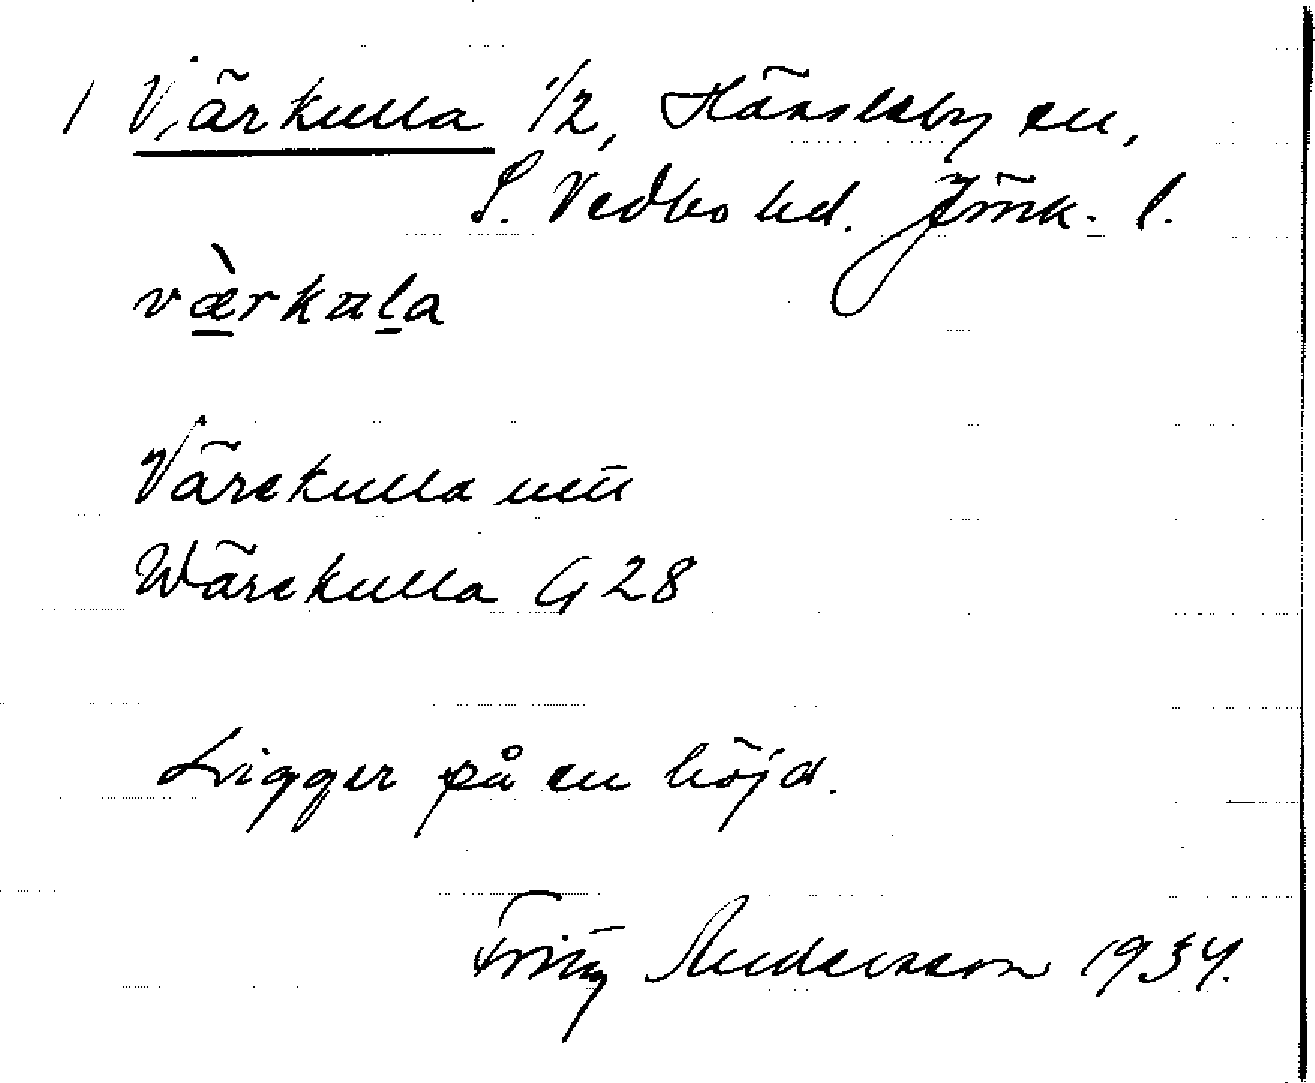 1 Värkulla 1/2, Hässleby sn,
S. Vedbo hd. Jönk. l.
værkula
Värekulla
Wärekulla G 28
Ligger på en höjd.
Fritz Andersson 1934.